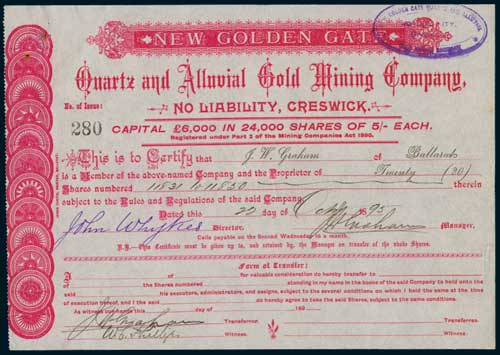 NEW GOLDEN GATE
Quartz and Alluvial Gold Mining Company,
No. of Issue:
NO LIABILITY, CRESWICK.
280
CAPITAL £6,000 IN 24,000 SHARES OF 5/- EACH.
Registered under Part 2 of the Mining Companies Act 1890.
This is to Certify that J. W. Graham of Ballarat
is a Member of the above-named Company and the Proprietor of Twenty (20)
Shares numbered 11831 to 11850 therein
subject to the Rules and Regulations of the said Company.
Dated this 22 day of 1895
John Whykes Director. Manager.
Calls payable on the Second Wednesday in a month.
N.B. This Certificate must be given up to, and retained by, the Manager on transfer of the whole Shares.
Form of Transfer:
for valuable consideration do hereby transfer to
the Shares numbered standing in my name in the books of the said Company to hold unto the
said his executors, administrators, and assigns, subject to the several conditions on which I held the same at the time
of execution hereof, and I the said do hereby agree to take the said Shares, subject to the same conditions.
As witness our hands this day of 189
Witness Transferror.
Witness Transferree.